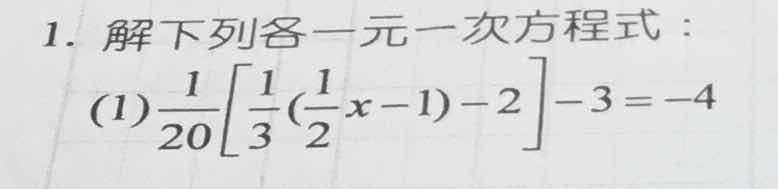 1. 解下列各一元一次方程式：
(1) \frac{1}{20}\left[\frac{1}{3}(\frac{1}{2}x-1)-2\right]-3=-4